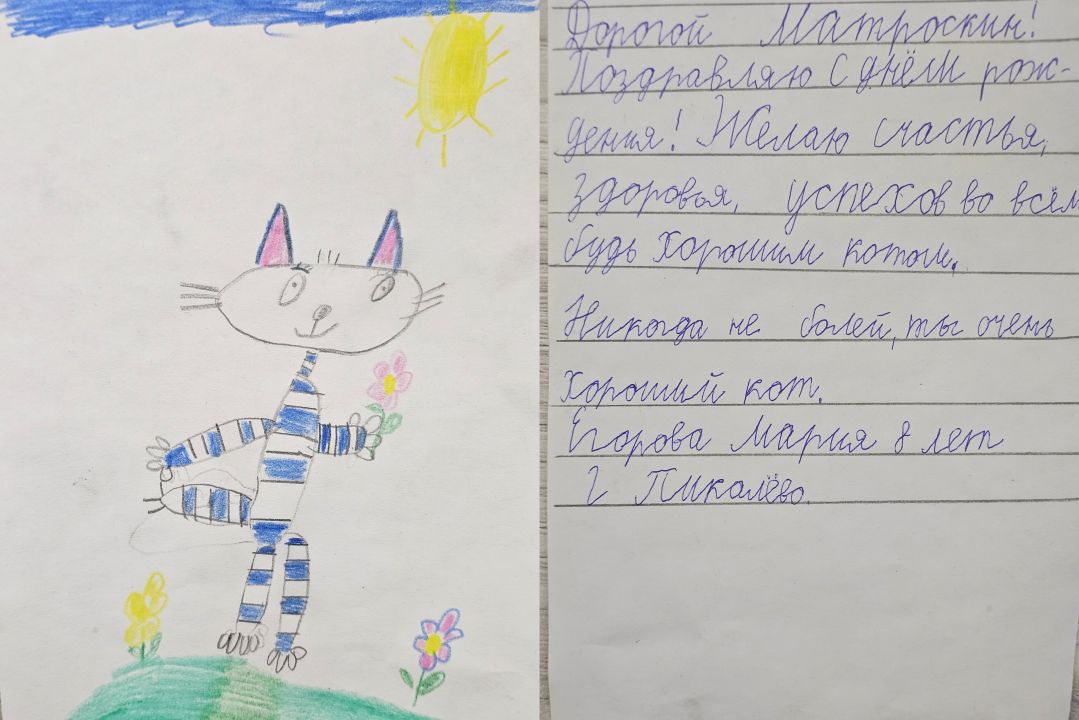 Дорогой Матроскин!
Поздравляю с днём рож-
дения! Желаю счастья,
здоровья, успехов во всём
будь хорошим котом.
Никогда не болей, ты очень
хороший кот.
Егорова Мария 8 лет
г Пикалёво